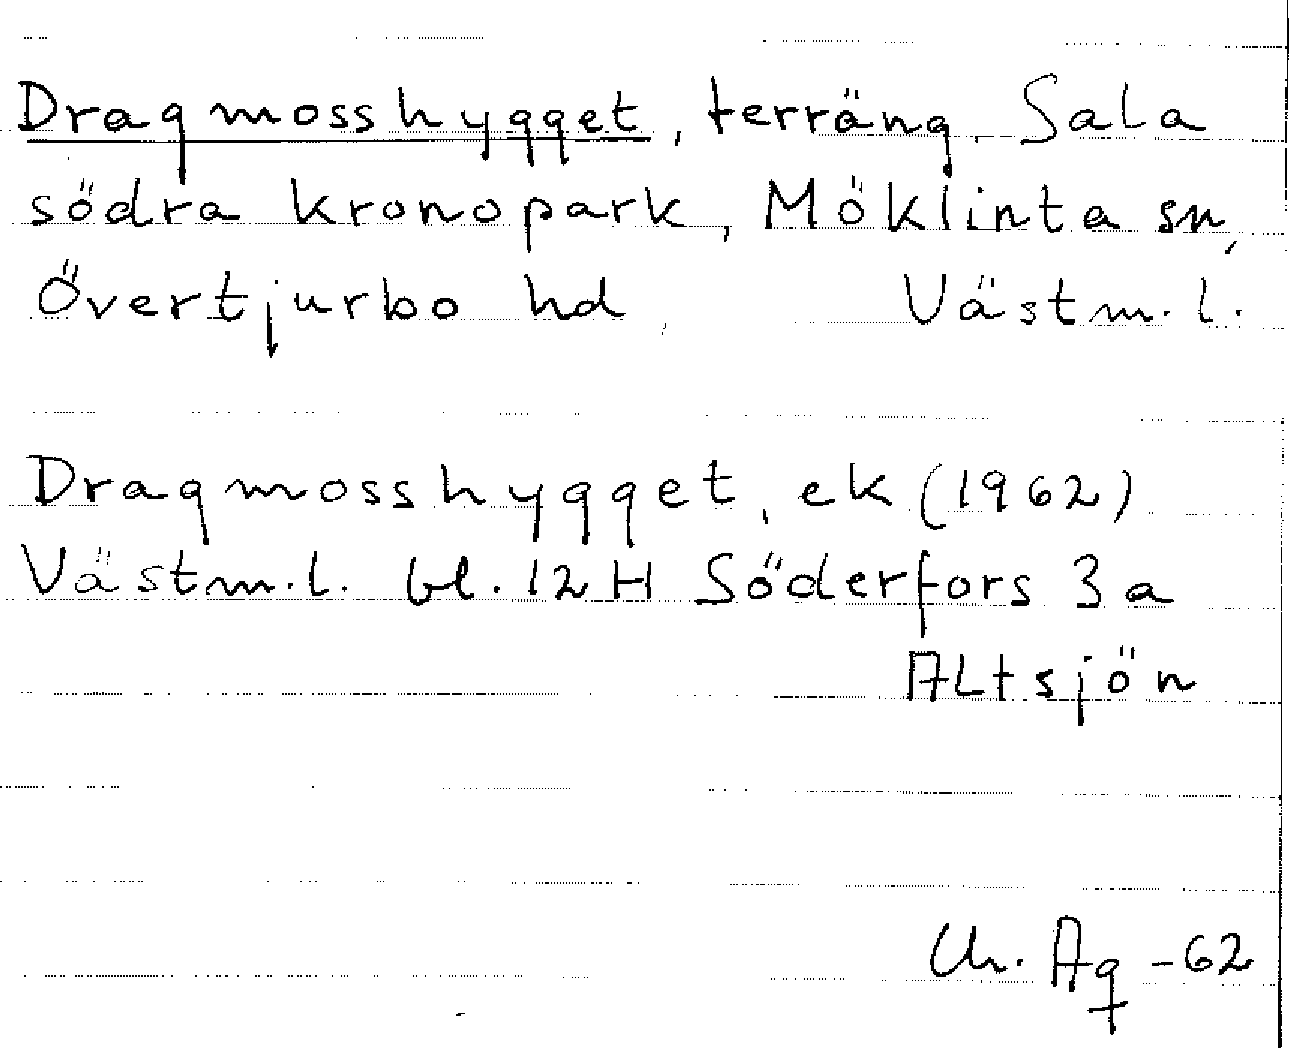 Dragmosshygget, terräng, Sala
södra kronopark, Möklinta sn,
Övertjurbo hd, Västm.l.
Dragmosshygget, ek (1962)
Västm.l. bl. 12H Söderfors 3a
Altsjön
Ch. Ag -62